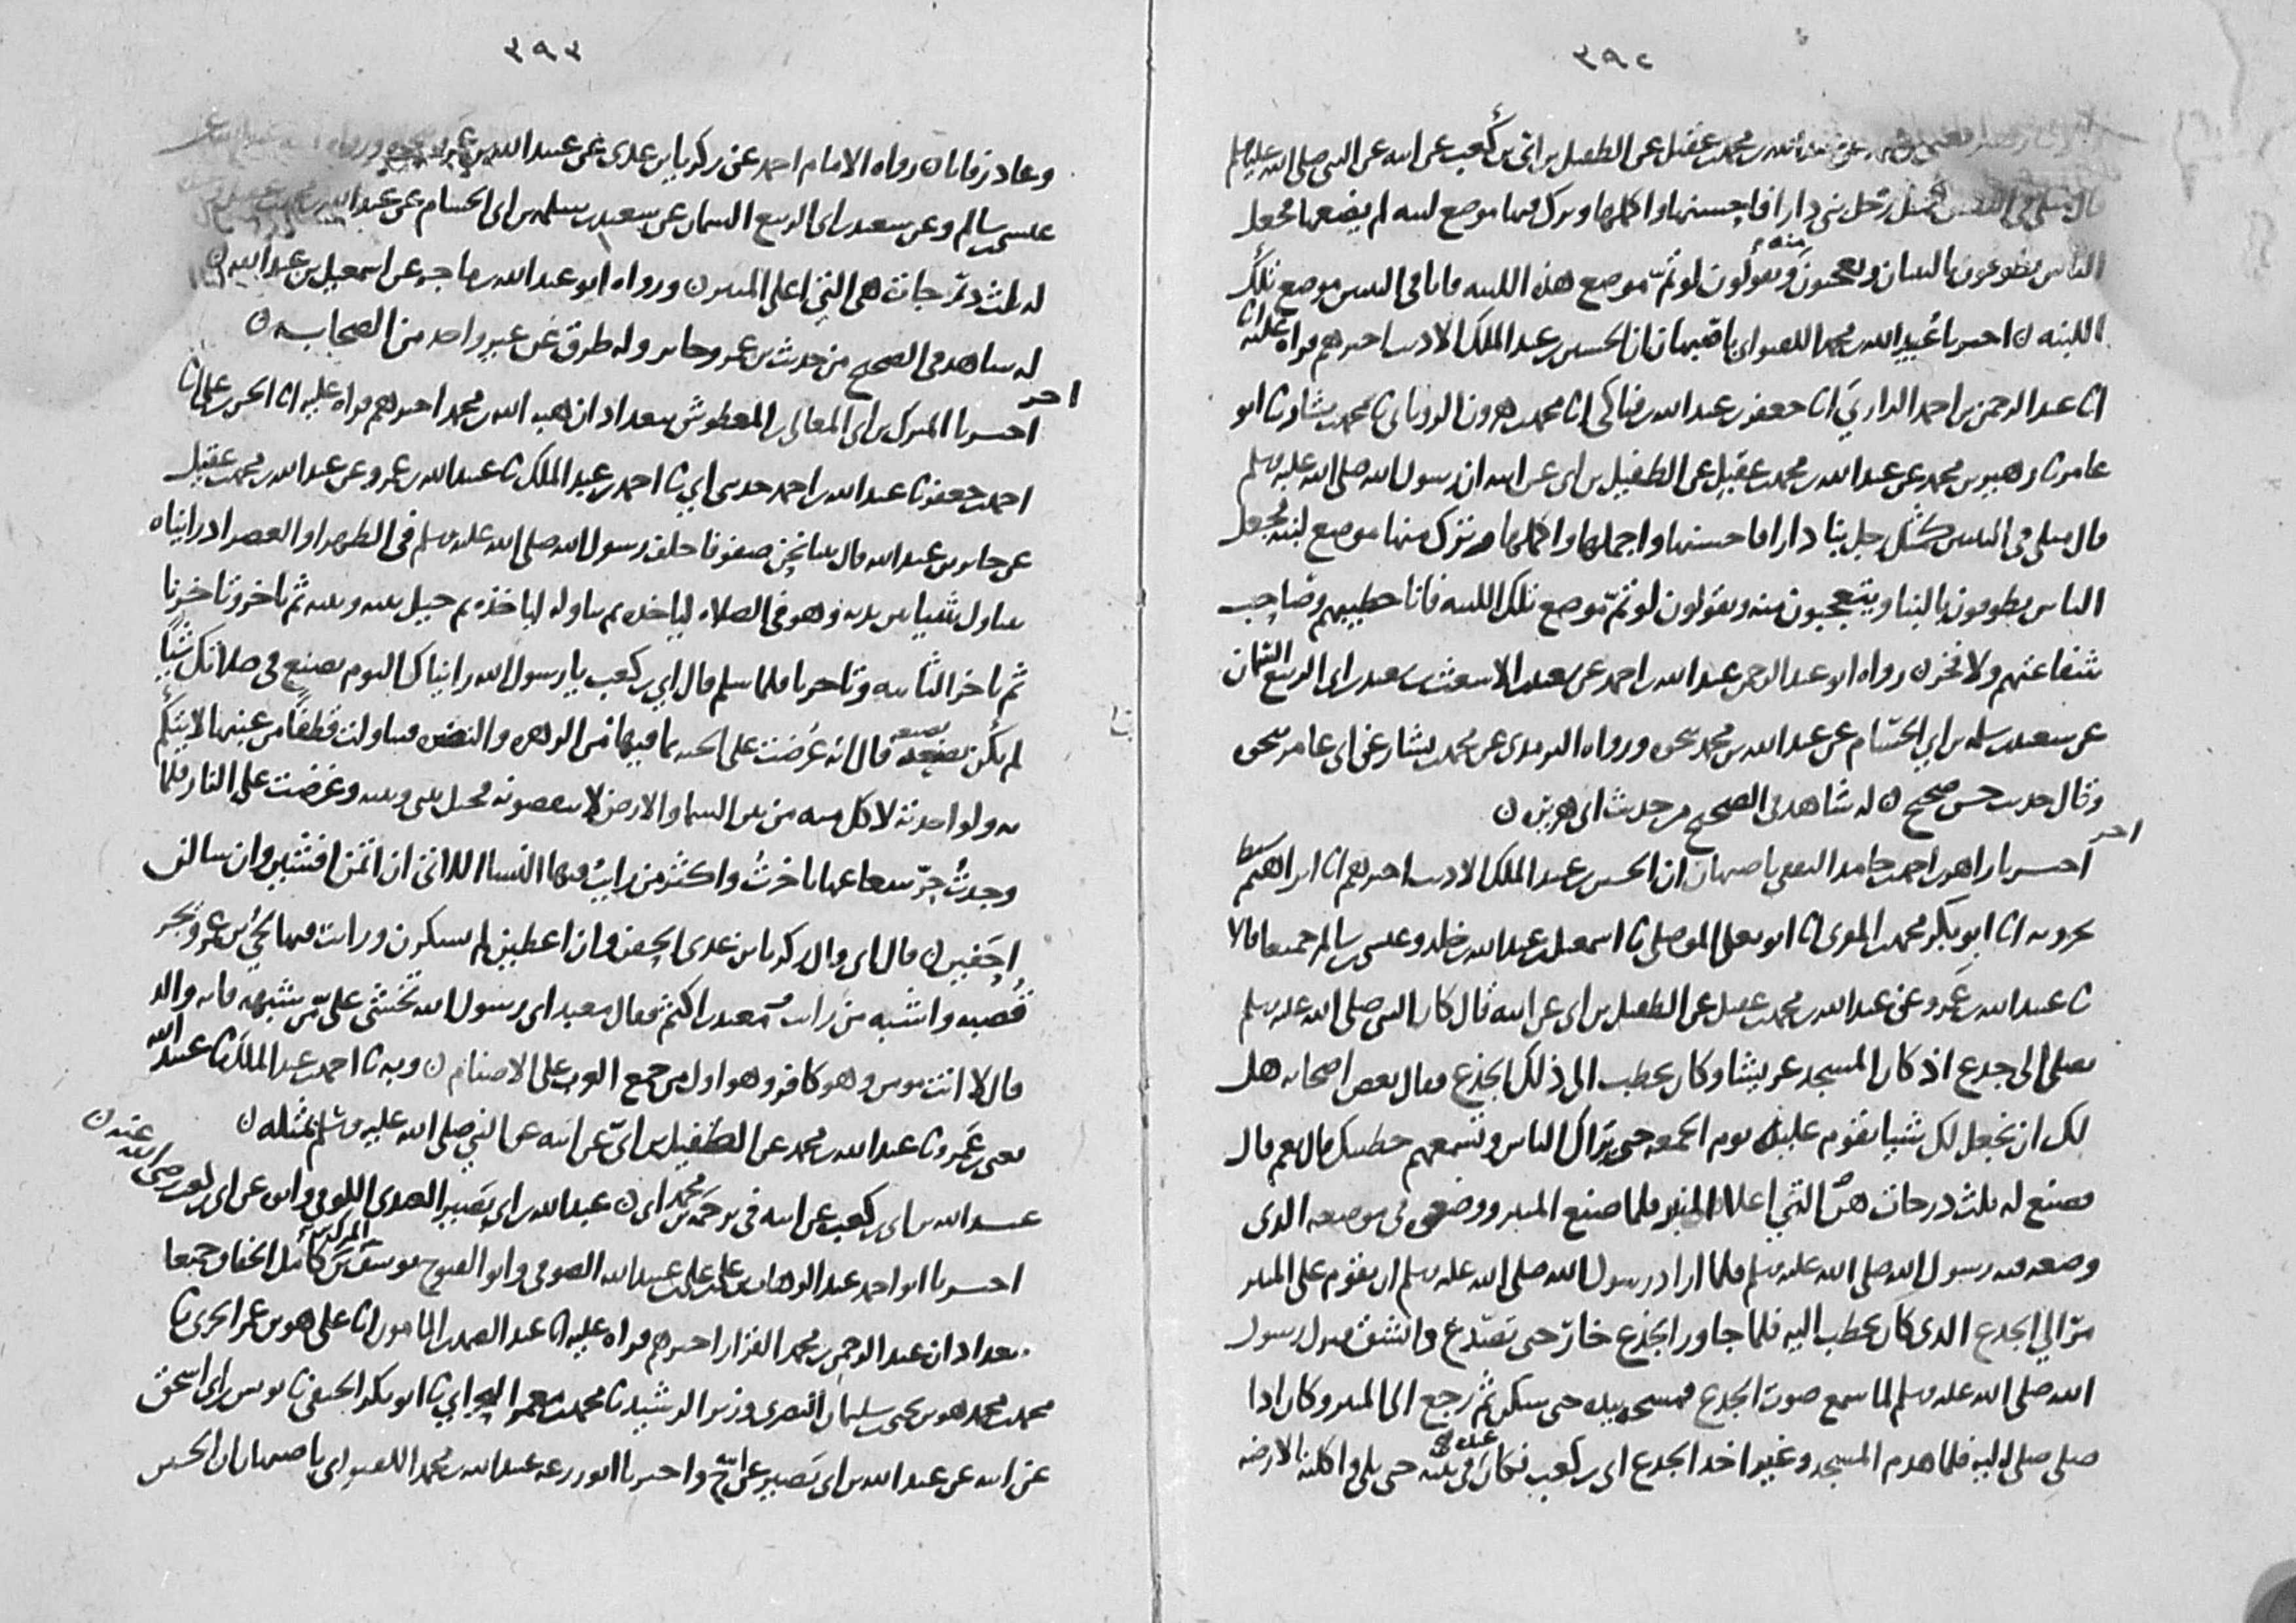 ٣٩٢
محمد بن عقيل عن الطفيل بن ابي بن كعب عن ابيه عن النبي صلى الله عليه وسلم
قال مثلي في النبيين كمثل رجل بنى دارا فاحسنها واكملها وترك فيها موضع لبنه لم يضعها فجعل
الناس يطوفون بالبنيان ويعجبون منه ويقولون لو تم موضع هذه اللبنه فانا في النبيين موضع تلك
اللبنه ن اخبرنا عبيد الله بن محمد اللفتواني باصبهان ان الحسين بن عبد الملك الاديب اخبرهم قراه عليه انا
انا عبد الرحمن بن احمد الرازي انا جعفر بن عبد الله بن فناكي انا محمد بن هرون الروياني نا محمد بن بشار نا ابو
عامر نا زهير بن محمد عن عبد الله بن محمد بن عقيل عن الطفيل بن ابي عن ابيه ان رسول الله صلى الله عليه وسلم
قال مثلي في النبيين كمثل رجل بنا دارا فاحسنها واجملها واكملها وترك منها موضع لبنه فجعل
الناس يطوفون بالبنا ويتعجبون منه ويقولون لو تم موضع تلك اللبنه فانا خطيبهم وصاحب
شفاعتهم ولا فخر ن رواه ابو عبد الرحمن عبد الله بن احمد عن سعيد بن الاشعث بن سعيد بن ابي الربيع السمان
عن سعيد بن سلمه بن ابي الحسام عن عبد الله بن محمد بنحوه ورواه الترمذي عن محمد بن بشار عن ابي عامر بنحوه
وقال حديث حسن صحيح ن له شاهد في الصحيح من حديث ابي هريره ن
اخر
اخبرنا زاهر بن احمد بن حامد الثقفي باصبهان ان الحسين بن عبد الملك الاديب اخبرهم انا ابراهيم سبط
بحرويه انا ابو بكر محمد بن المقرئ انا ابو يعلى الموصلي نا اسمعيل بن عبد الله بن خلد وعيسى بن سالم جميعا قالا
نا عبيد الله بن عمرو عن عبد الله بن محمد بن عقيل عن الطفيل بن ابي عن ابيه قال كان النبي صلى الله عليه وسلم
يصلي الى جذع اذ كان المسجد عريشا وكان يخطب الى ذلك الجذع فقال بعض اصحابه هل
لك ان نجعل لك شيا تقوم عليه يوم الجمعه حتى يراك الناس وتسمعهم خطبتك قال نعم قال
فصنع له ثلث درجات هن التي اعلا المنبر فلما صنع المنبر ووضع في موضعه الذي
وضعه فيه رسول الله صلى الله عليه وسلم فلما اراد رسول الله صلى الله عليه وسلم ان يقوم على المنبر
مر الي الجذع الذي كان يخطب اليه فلما جاوز الجذع خار حتى تصدع وانشق فنزل رسول
الله صلى الله عليه وسلم لما سمع صوت الجذع فمسحه بيده حتى سكن ثم رجع الى المنبر وكان اذا
صلى صلى اليه فلما هدم المسجد وغير اخذ الجذع ابي بن كعب فكان عنده في بيته حتى بلي واكلته الارضه
٣٩٣
وعاد رفاتا ن رواه الامام احمد عن زكريا بن عدي عن عبيد الله بن عمرو
عيسى بن سالم وعن سعيد بن ابي الربيع السمان عن سعيد بن سلمه بن ابي الحسام عن عبد الله
له ثلث درجات هي التي اعلى المنبر ن ورواه ابو عبد الله بن ماجه عن اسمعيل بن عبد الله ن
له شاهد في الصحيح من حديث بن عمر وجابر وله طرق عن غير واحد من الصحابه ن
اخر
اخبرنا المبرك بن ابي المعالي بن المعطوش ببغداد ان هبه الله بن محمد اخبرهم قراه عليه انا الحسن بن علي انا
احمد بن جعفر نا عبد الله بن احمد حدثني ابي نا احمد بن عبد الملك نا عبيد الله بن عمرو عن عبد الله بن محمد بن عقيل
عن جابر بن عبد الله قال بينا نحن صفوفا خلف رسول الله صلى الله عليه وسلم في الظهر او العصر اذ رايناه
يتناول شيا بين يديه وهو في الصلاه لياخذه ثم تناوله لياخذه ثم حيل بينه وبينه ثم تاخر وتاخرنا
ثم تاخر الثانيه وتاخرنا فلما سلم قال ابي بن كعب يا رسول الله رايناك اليوم تصنع في صلاتك شيا
لم تكن تصنعه قال انه عرضت علي الجنه بما فيها من الزهره والنضره فتناولت قطفا من عنبها لاتيكم
به ولو اخذته لاكل منه من بين السما والارض لا ينقصونه فحيل بيني وبينه وعرضت علي النار فلما
وجدت حر شعاعها تاخرت واكثر من رايت فيها النسا اللاتي ان ائتمن افشين وان سالن
احفين ن قال ابي قال زكريا بن عدي الحفن وان اعطين لم يشكرن ورايت فيها لحي بن عمرو يجر
قصبه واشبه من رايت معبد بن اكثم فقال معبد اي رسول الله تخشى علي من شبهه فانه والد
قال لا انت مومن وهو كافر وهو اول من جمع العرب على الاصنام ن وبه نا احمد بن عبد الملك نا عبيد الله
يعني بن عمرو نا عبد الله بن محمد عن الطفيل بن ابي عن ابيه عن النبي صلى الله عليه وسلم بمثله ن
عبد الله بن ابي بن كعب عن ابيه في ترجمه محمد بن ابي ن عبد الله بن ابي بصير العبدي الكوفي وابوه عن ابي بن كعب رضي الله عنه ن
اخبرنا ابو احمد عبد الوهاب بن علي بن علي بن عبيد الله الصوفي وابو الفتوح يوسف بن المبرك بن كامل الخفاف جميعا
ببغداد ان عبد الرحمن بن محمد القزاز اخبرهم قراه عليه انا عبد الصمد بن المامون انا علي هو بن عمر الحربي نا
محمد بن محمد هو بن يحيى بن سليمان البصري وزير الرشيد نا محمد بن معمر البحراني نا ابو بكر الحنفي نا يونس بن ابي اسحق
عن ابيه عن عبد الله بن ابي بصير عن ابي ح واخبرنا ابو زرعه عبيد الله بن محمد اللفتواني باصبهان ان الحسين